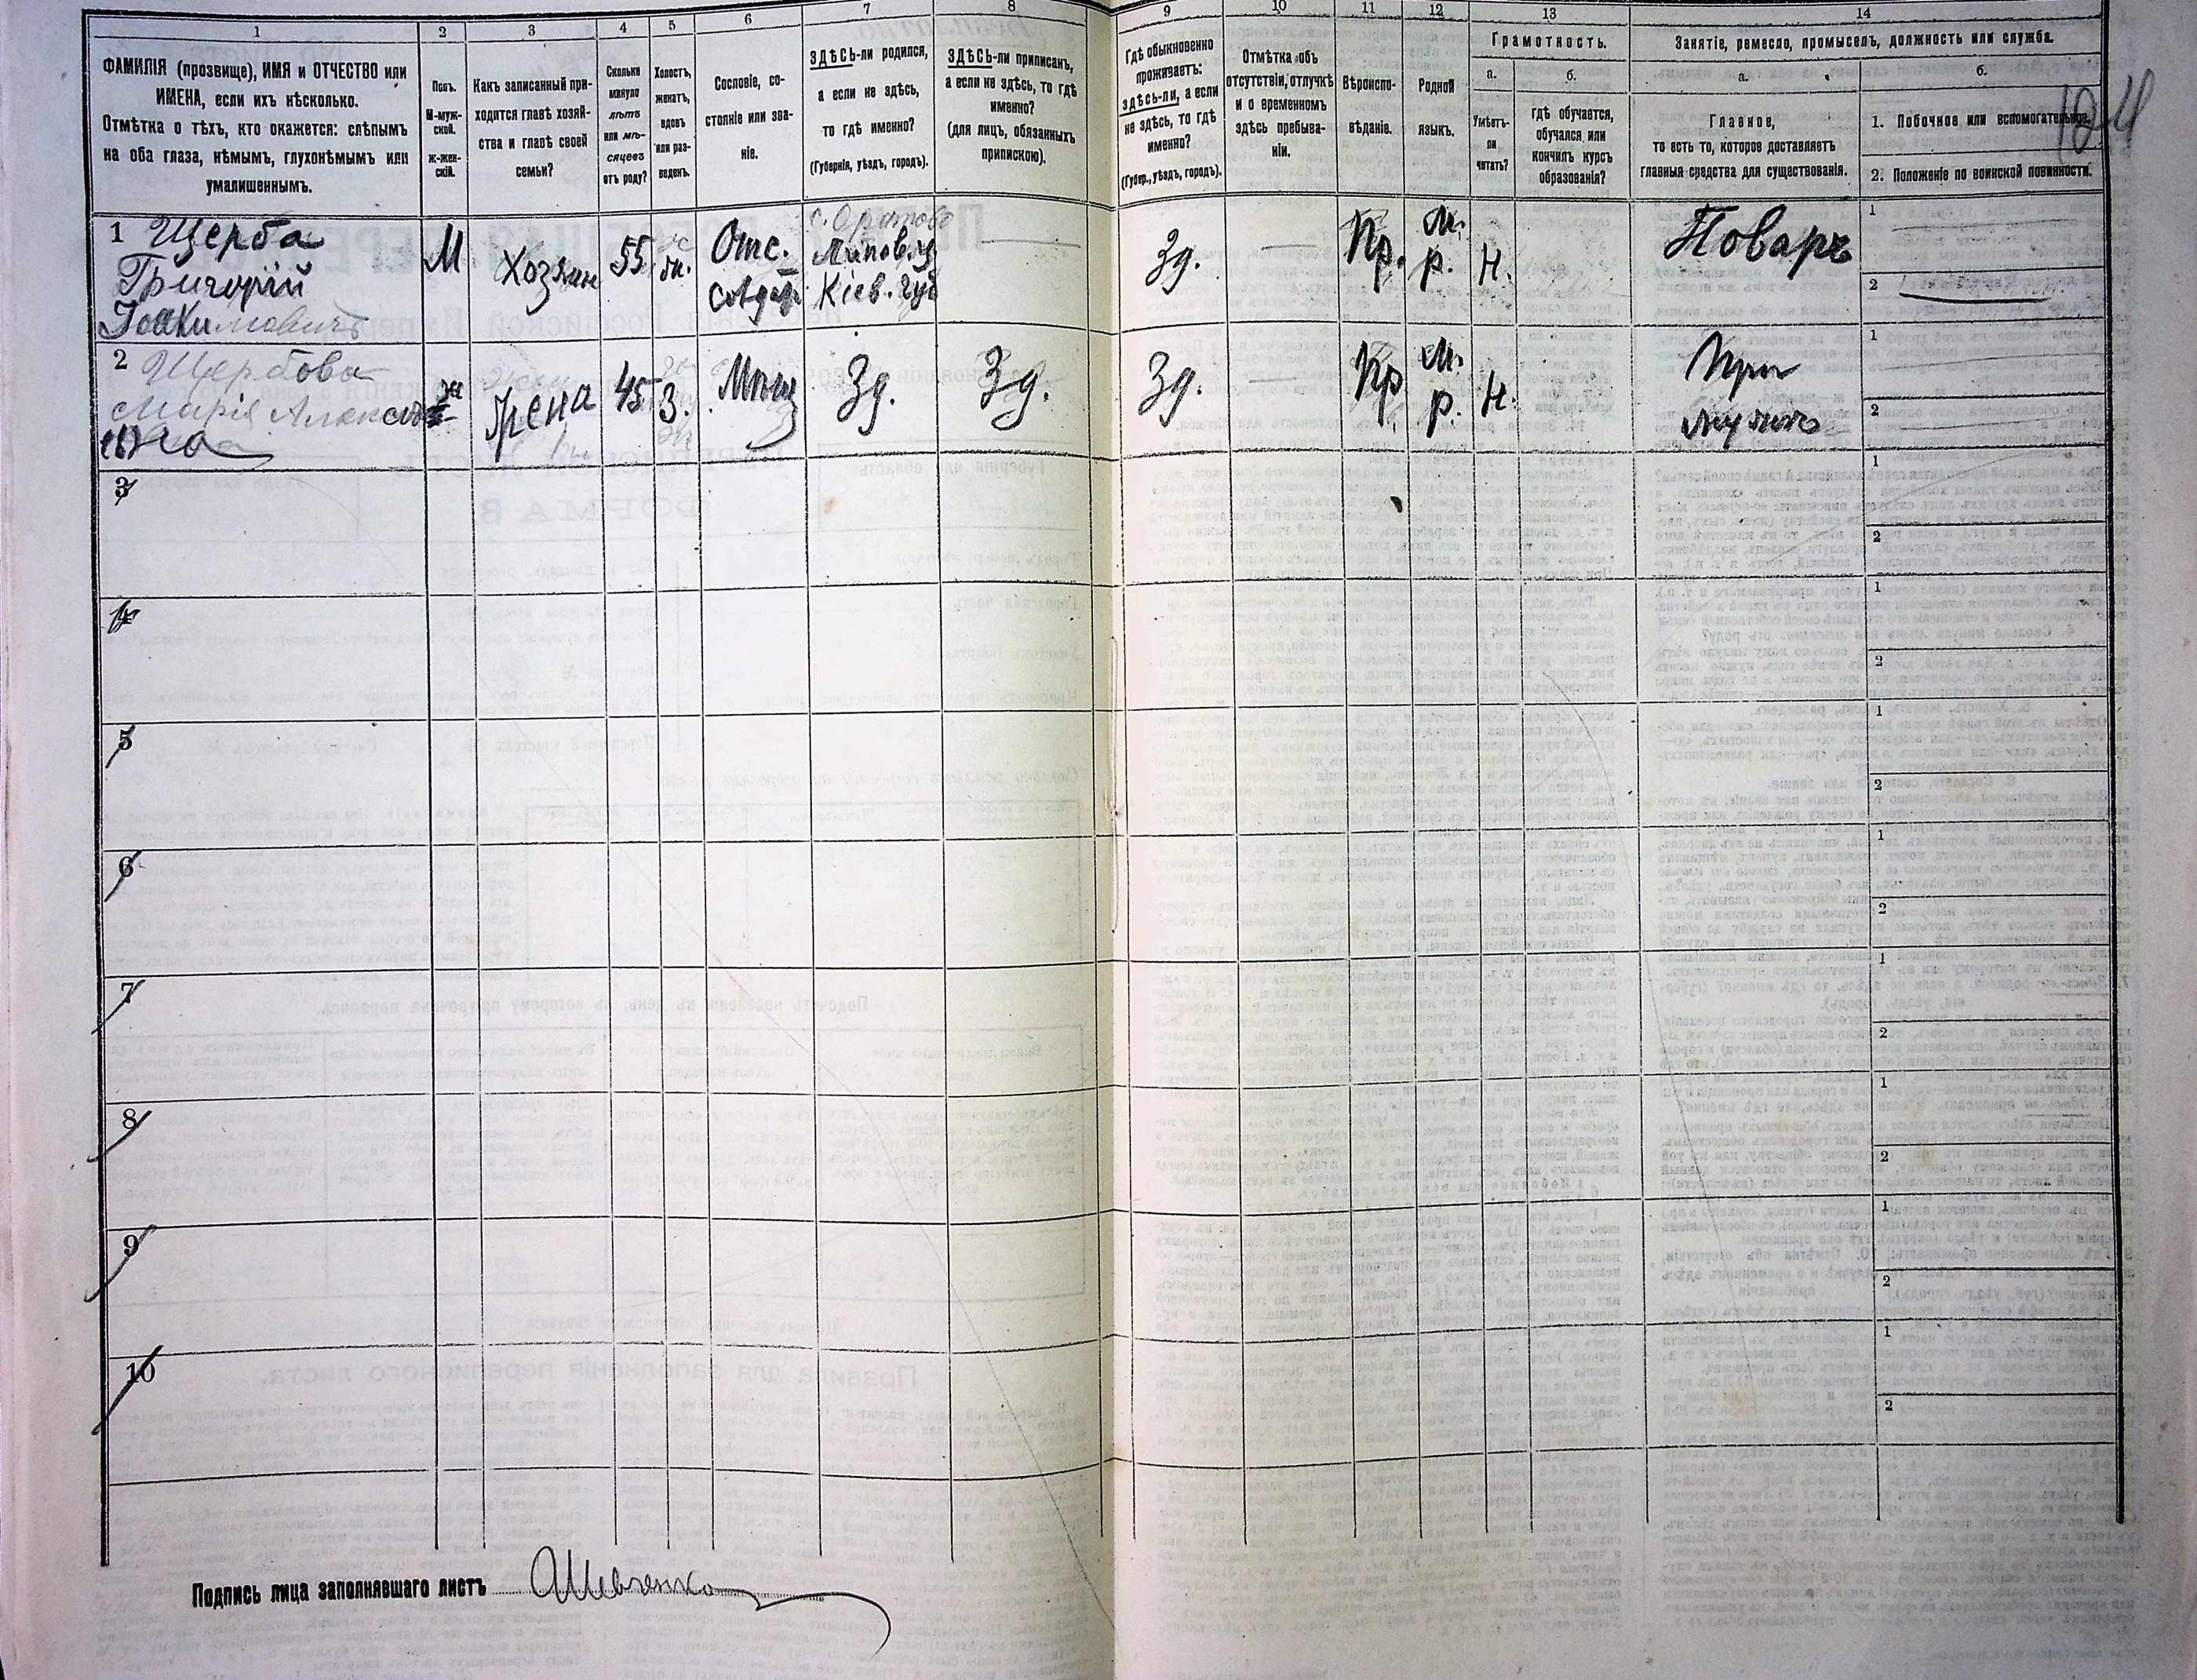 1
2
3
4
5
6
7
8
9
10
11
12
13
14
ФАМИЛІЯ (прозвище), ИМЯ и ОТЧЕСТВО или
ИМЕНА, если ихъ нѣсколько.
Отмѣтка о тѣхъ, кто окажется: слѣпымъ
на оба глаза, нѣмымъ, глухонѣмымъ или
умалишеннымъ.
Полъ.
М-муж-
ской.
Ж-жен-
скій.
Какъ записанный при-
ходится главѣ хозяй-
ства и главѣ своей
семьи?
Сколько
минуло
лѣтъ
или мѣ-
сяцевъ
отъ роду?
Холостъ,
женатъ,
вдовъ
или раз-
веденъ.
Сословіе, со-
стояніе или зва-
ніе.
ЗДѢСЬ-ли родился,
а если не здѣсь,
то гдѣ именно?
(Губернія, уѣздъ, городъ).
ЗДѢСЬ-ли приписанъ,
а если не здѣсь, то гдѣ
именно?
(для лицъ, обязанныхъ
припискою).
Гдѣ обыкновенно
проживаетъ:
здѣсь-ли, а если
не здѣсь, то гдѣ
именно?
(Губер., уѣздъ, городъ).
Отмѣтка объ
отсутствіи, отлучкѣ
и о временномъ
здѣсь пребыва-
ніи.
Вѣроиспо-
вѣданіе.
Родной
языкъ.
Грамотность.
а.
Умѣетъ-
ли
читать?
б.
гдѣ обучается,
обучался или
кончилъ курсъ
образованія?
Занятіе, ремесло, промыселъ, должность или служба.
а.
Главное,
то есть то, которое доставляетъ
главныя средства для существованія.
б.
1. Побочное или вспомогательное.
2. Положеніе по воинской повинности.
1 Щерба
Григорій
Іоакимовичъ
М
Хозяин
55
Отс.
Солдатъ
с. Оратово
Липов. у.
Кіев. губ
Зд.
Пр.
М.
р.
Н.
Поваръ
1
2
2 Щербова
Марія Александ
ж
Жена
45
З.
Мѣщ
Зд.
Зд.
Зд.
Пр
М.
р.
Н.
При
мужѣ
1
2
3
1
2
4
1
2
5
1
2
6
1
2
7
1
2
8
1
2
9
1
2
10
1
2
Подпись лица заполнявшаго листъ АШевченко